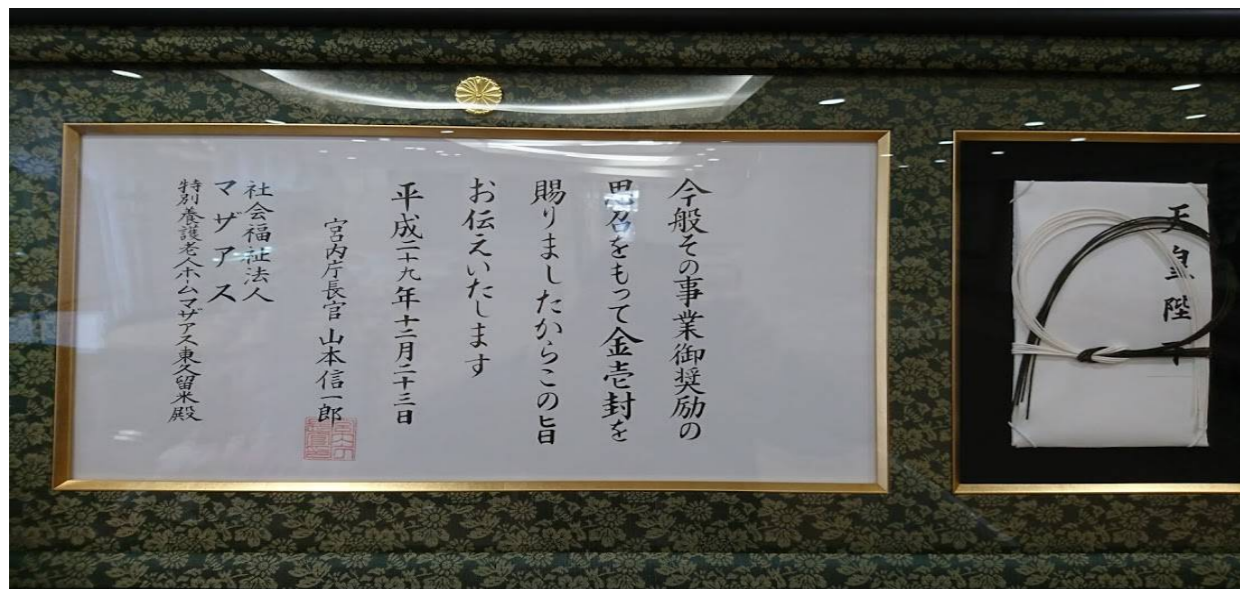 今般その事業御奨励の
思召をもって金壱封を
賜りましたからこの旨
お伝えいたします
平成二十九年十二月二十三日
宮内庁長官 山本信一郎
社会福祉法人
マザアス
特別養護老人ホームマザアス東久留米殿
天皇陛下